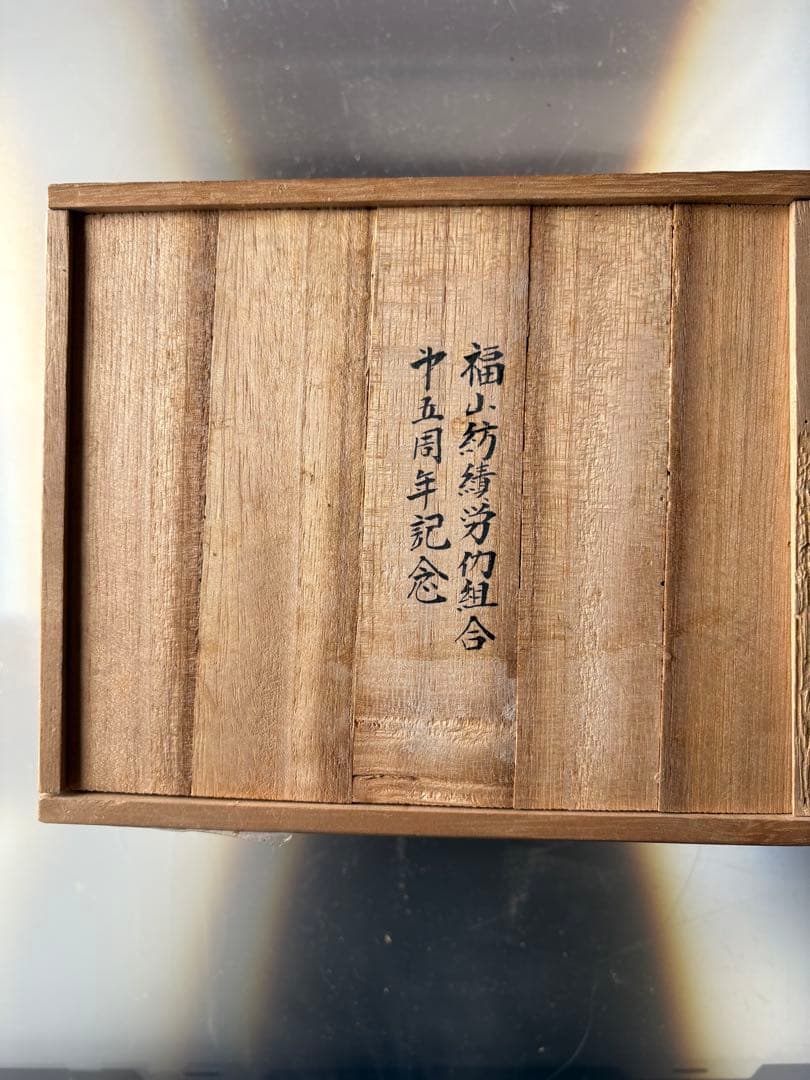 福山紡績労仂組合
五周年記念